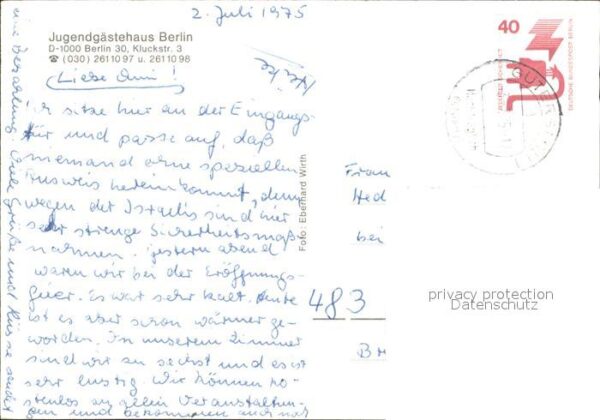 2. Juli 1975
Jugendgästehaus Berlin
D-1000 Berlin 30, Kluckstr. 3
☎ (030) 261 10 97 u. 261 10 98
Liebe Omi!
Ich sitze hier an der Eingangs-
tür und passe auf, daß
niemand ohne speziellen
Ausweis hereinkommt, denn
wegen der Israelis sind hier
sehr strenge Sicherheitsmaß-
nahmen. Gestern abend
waren wir bei der Eröffnungs-
feier. Es war sehr kalt. Heute
ist es aber schon wärmer ge-
worden. In unserem Zimmer
sind wir zu sechst und es ist
sehr lustig. Wir können ko-
stenlos an allen Veranstaltun-
gen und bekommen auch noch
eine Bezahlung. Viele Grüße und Küsse sendet
Heike
Foto: Eberhard Wirth
40
DEUTSCHE BUNDESPOST BERLIN
Frau
Hed
bei
483
privacy protection
Datenschutz